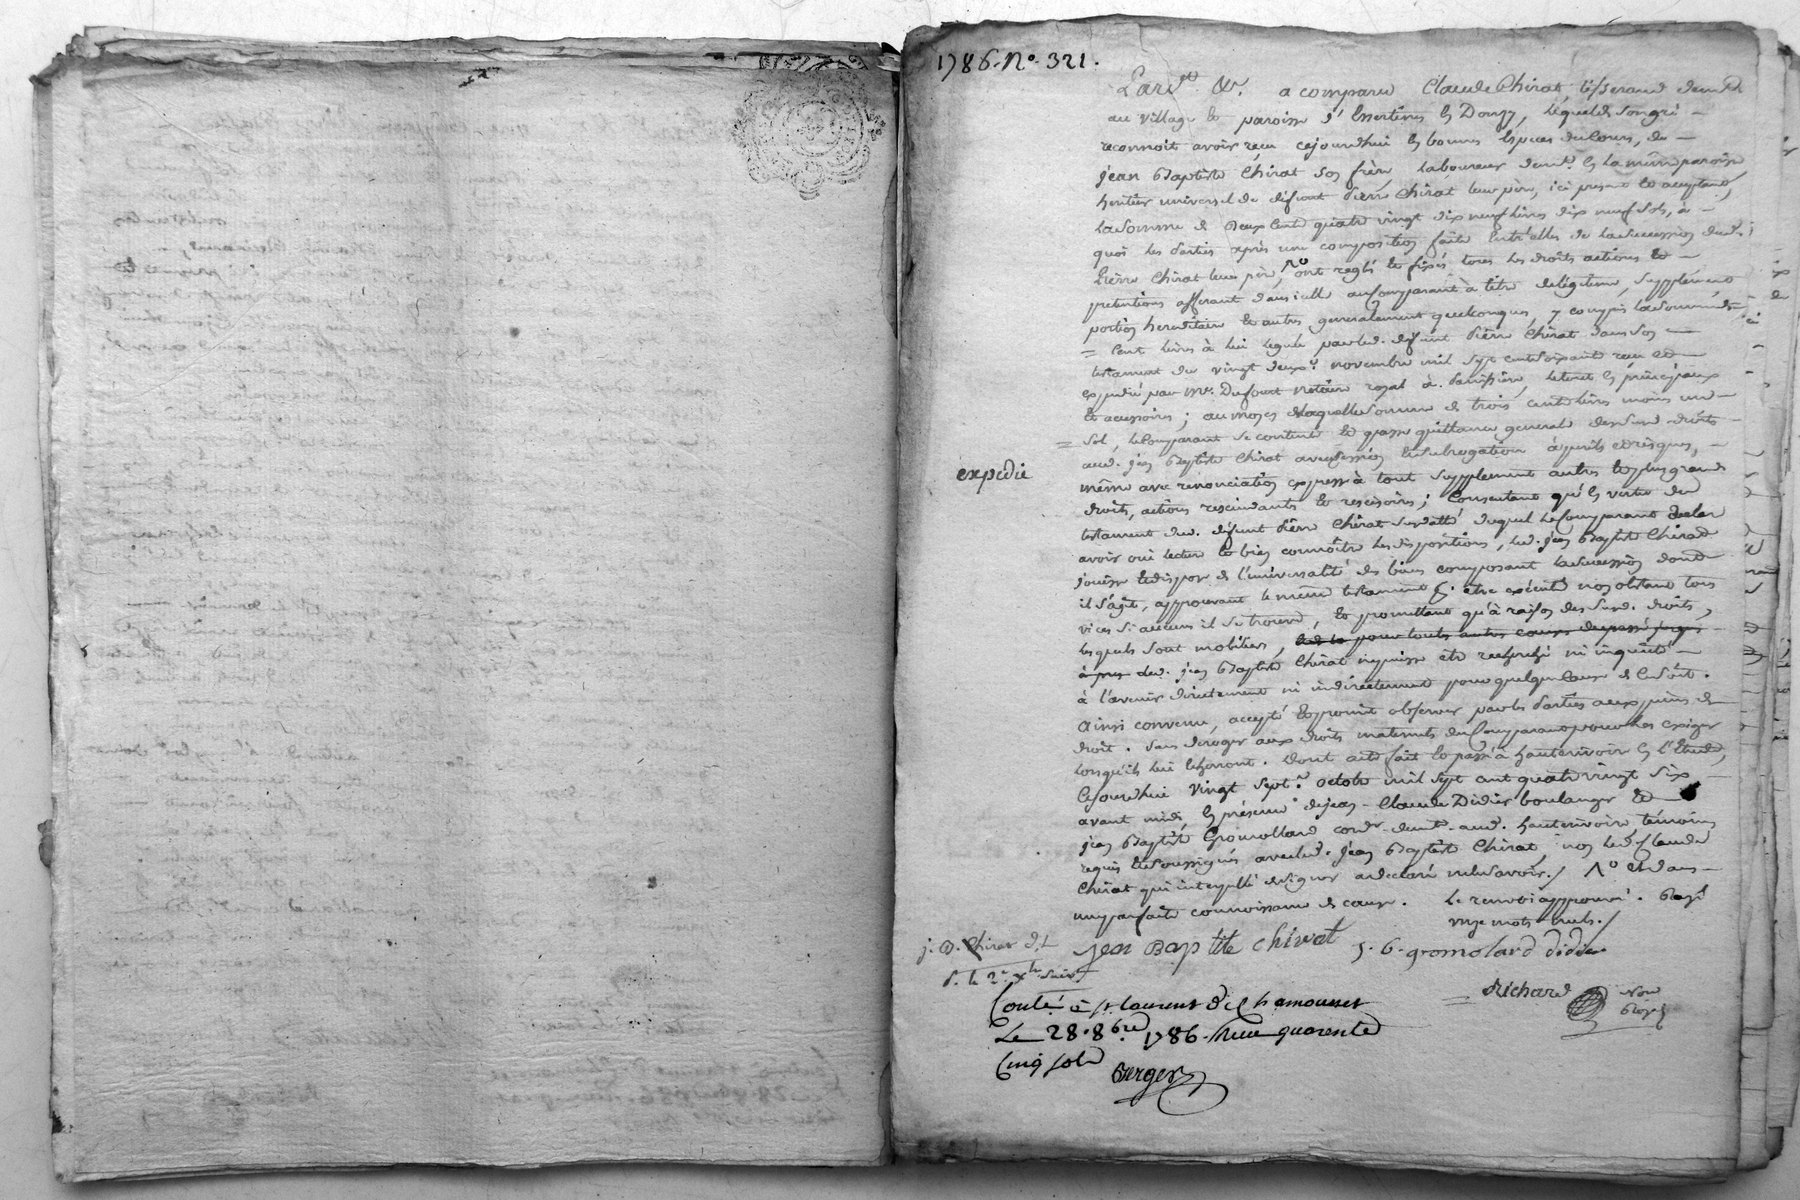 1786. No. 321.
Pardt. &c. a comparu Claude Chirat tisserand demt
au village et paroisse d'Essertines en Donzy, lequel de son gré
reconnoit avoir recu cejourdhui en bonnes especes du cours, de
jean Baptiste Chirat son frère laboureur demt. en la même paroisse
heritier universel de défunt Pierre Chirat leur père, ici present et acceptant,
la somme de deux cent quatre vingt dix neuf livres dix neuf sols, à
quoi les parties après une composition faite entr'elles de la succession dud.
Pierre Chirat leur père, ont reglé et fixés tous les droits actions et
pretentions afferant dans icelle au comparant à titre de légitime, supplément
portion hereditaire et autres generalement quelconques, y compris la somme de
cent livres à lui leguée par led. défunt Pierre Chirat dans son
testament du vingt deux novembre mil sept cent soixante recu et
expedié par Me. Dufour notaire royal à Panissière, le tout en principaux
et accessoires; au moyen de laquelle somme de trois cent livres moins un
sol, le comparant se contente et passe quittance generale desd. droits
aud. jean Baptiste Chirat avec cession et subrogation à perils et risques,
expedié
même avec renonciation expresse à tout supplement autres et plus grands
droits, actions rescindants et rescisoires; consentant qu'en vertu du
testament dud. défunt Pierre Chirat susdatté duquel le comparant declare
avoir oui lecture et bien connoître les dispositions, led. jean Baptiste Chirat
jouisse et dispose de l'universalité des biens composant la succession dont
il s'agit, approuvant le meme testament pr. etre exécuté nonobstant tous
vices si aucuns il se trouve, et promettant qu'à raison des susd. droits,
lesquels sont mobiliers, pour toutes autres causes du passé jusques
à pres led. jean Baptiste Chirat ne puisse etre recherché ni inquieté
à l'avenir directement ni indirectement pour quelque cause que ce soit.
Ainsi convenu, accepté et promit observer par les parties aux peines de
droit. Sans deroger aux droits maternels du comparant pour les exiger
lorsqu'ils lui echerront. Dont acte fait et passé à hauterivoire en l'Etude,
cejourdhui vingt sept octobre mil sept cent quatre vingt six
avant midi, en présence de jean-Claude Didier boulanger et
jean Baptiste Gromollard cordr. demt. aud. hauterivoire témoins
requis et soussignés avec led. jean Baptiste Chirat, non led. Claude
Chirat qui interpellé de signer a declaré ne le savoir./ et dans
une parfaite connoissance de cause. le renvoi approuvé. Rayé
onze mots nuls./
j. B. Chirat
Jean Baptite Chirat
j. b. gromolard didier
Richard
Nore
Royal
Conté à st. laurent de Chamousset
Le 28. 8bre 1786. Reçu quarente
Cinq sols
Berger